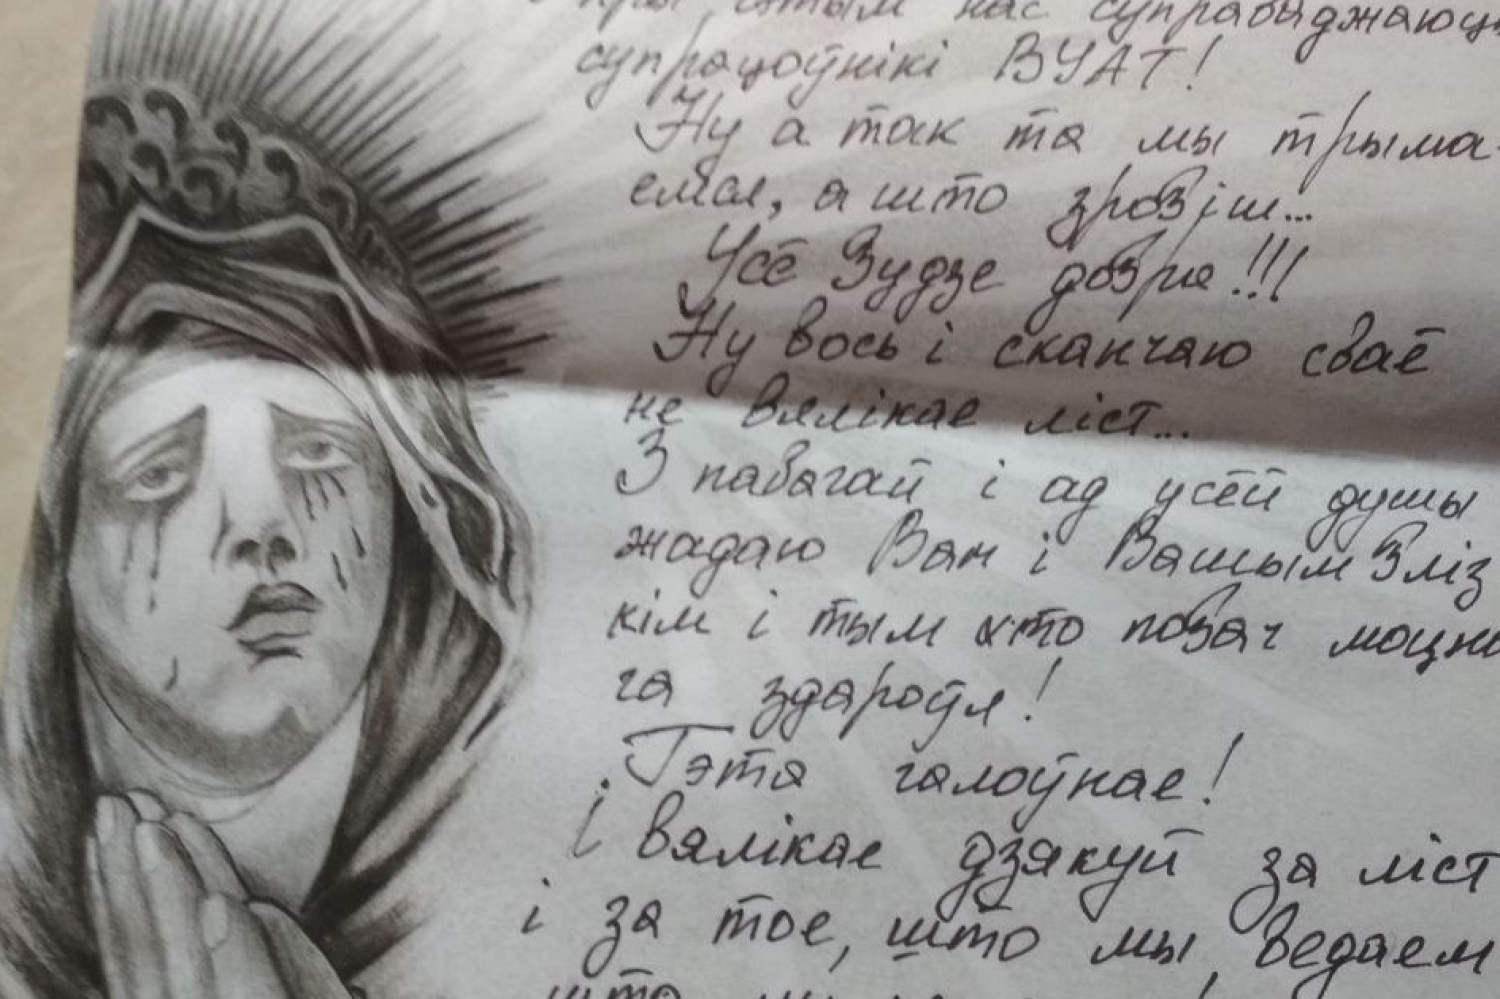 пры гэтым нас суправаджаюць
супрацоўнікі ВУАТ!
Ну а так та мы трыма-
емся, а што зробіш...
Усё будзе добра!!!
Ну вось і сканчаю сваё
не вялікае ліст...
З павагай і ад усёй душы
жадаю Вам і Вашым бліз
кім і тым хто побач моцна
га здароўя!
Гэта галоўнае!
І вялікае дзякуй за ліст
і за тое, што мы ведаем
што мы